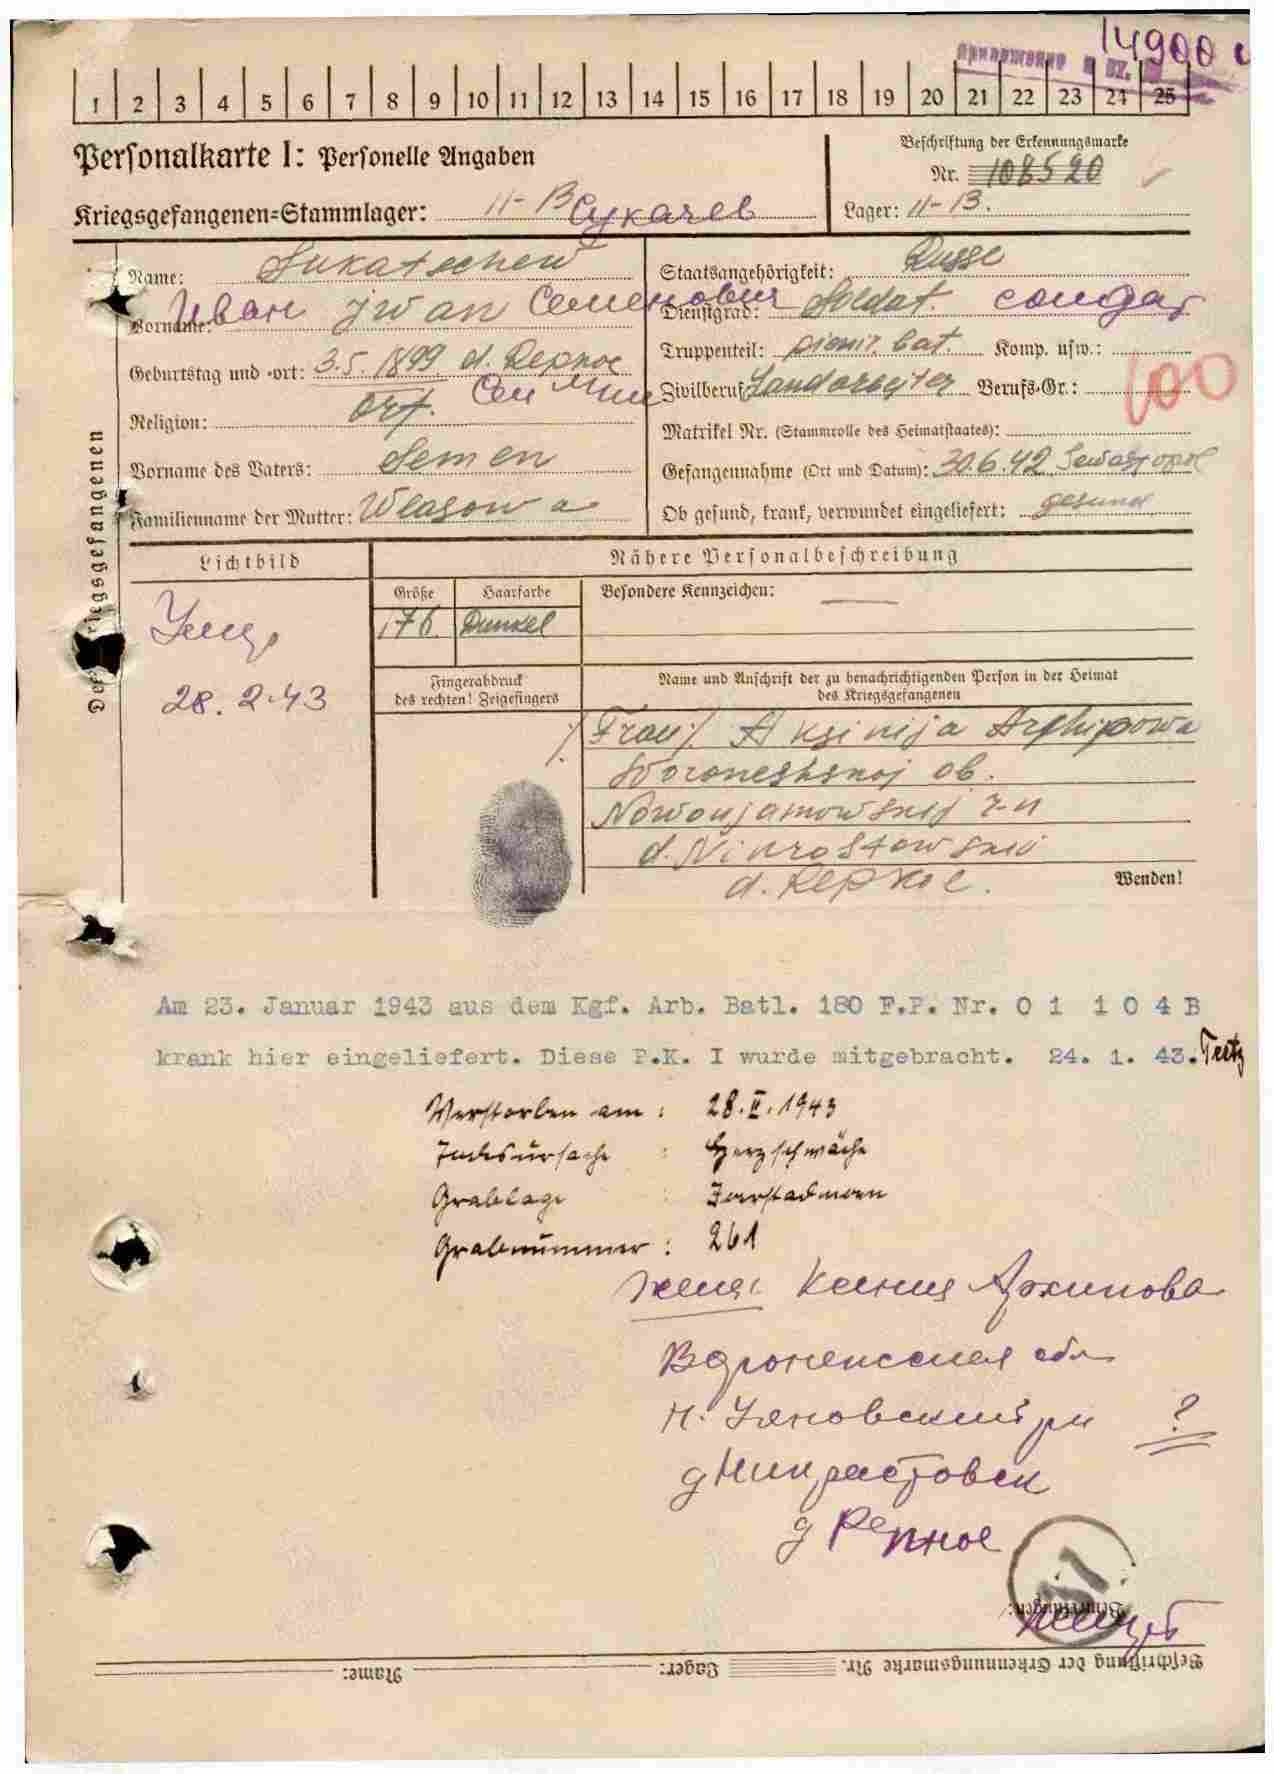 14900
1 2 3 4 5 6 7 8 9 10 11 12 13 14 15 16 17 18 19 20 21 22 23 24 25
Personalkarte I: Personelle Angaben
Beschriftung der Erkennungsmarke
Nr. 108520
Kriegsgefangenen=Stammlager: II-B Сукачев
Lager: II-B.
Des Kriegsgefangenen
Name: Sukatschew
Staatsangehörigkeit: Russe
Vorname: Иван Jwan Семенович
Dienstgrad: Soldat. солдат
Truppenteil: pionir. bat. Komp. usw.:
Geburtstag und -ort: 3.5.1899 d. Repnoe
Zivilberuf: Landarbeiter Berufs-Gr.: 100
Religion: Ort.
Matrikel Nr. (Stammrolle des Heimatstaates):
Vorname des Vaters: Semen
Gefangennahme (Ort und Datum): 30.6.42 Sewastopol
Familienname der Mutter: Wlasowa
Ob gesund, krank, verwundet eingeliefert: gesund
Lichtbild
Nähere Personalbeschreibung
Größe Haarfarbe Besondere Kennzeichen: —
176. Dunkel
Умер
28.2.43
Fingerabdruck
des rechten! Zeigefingers
Name und Anschrift der zu benachrichtigenden Person in der Heimat
des Kriegsgefangenen
/Frau/. Aksinija Arhipowa
Woroneshskoj ob.
Nowoujanowskij r-n
d. Nikrostowskij
d. Repnoe.
Wenden!
Am 23. Januar 1943 aus dem Kgf. Arb. Batl. 180 F.P. Nr. 0 1 1 0 4 B
krank hier eingeliefert. Diese P.K. I wurde mitgebracht. 24. 1. 43.
Verstorben am : 28.II.1943
Todesursache : Herzschwäche
Grablage :
Grabnummer : 261
жена: Ксения Архипова
Воронежская обл
Н. Уяновский рн ?
д Никрастовск
д Репное
Bemerkungen:
Beschriftung der Erkennungsmarke Nr. Lager: Name: